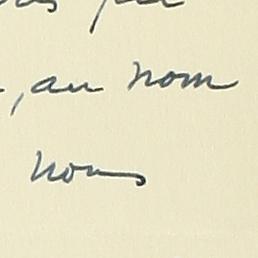 , au nom
nous